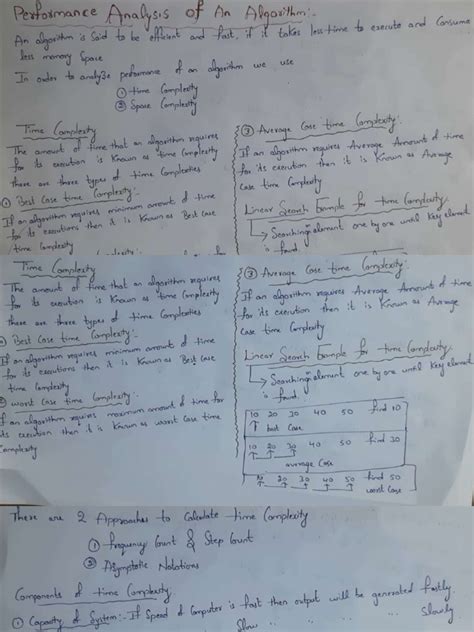 Performance Analysis of An Algorithm:-
An algorithm is said to be efficient and fast, if it takes less time to execute and consume
less memory space
In order to analyze performance of an algorithm we use
① time Complexity
② Space Complexity
Time Complexity
The amount of time that an algorithm requires
for its execution is known as time complexity
there are three types of time complexities
① Best Case time Complexity:-
If an algorithm requires minimum amount of time
for its executions then it is known as Best case
time Complexity
③ Average Case time Complexity:
If an algorithm requires Average Amount of time
for its execution then it is known as Average
Case time Complexity
Linear Search Example for time Complexity
Searching element one by one until key element
is found.
Time Complexity
The amount of time that an algorithm requires
for its execution is known as time complexity
there are three types of time complexities
Best Case time Complexity:
If an algorithm requires minimum amount of time
for its executions then it is known as Best case
time Complexity
② worst Case time Complexity:
If an algorithm requires maximum amount of time for
its execution then it is known as worst case time
Complexity
③ Average Case time Complexity:
If an algorithm requires Average Amount of time
for its execution then it is known as Average
Case time Complexity
Linear Search Example for time Complexity
Searching element one by one until key element
is found
10 20 30 40 50 find 10
best Case
10 20 30 40 50 find 30
average Case
10 20 30 40 50 find 50
worst Case
There are 2 Approaches to Calculate time Complexity
① frequency Count & Step Count
② Asymptotic Notations
Components of time Complexity
① Capacity of System:- If Speed of Computer is fast then output will be generated fastly.
Slow " " Slowly